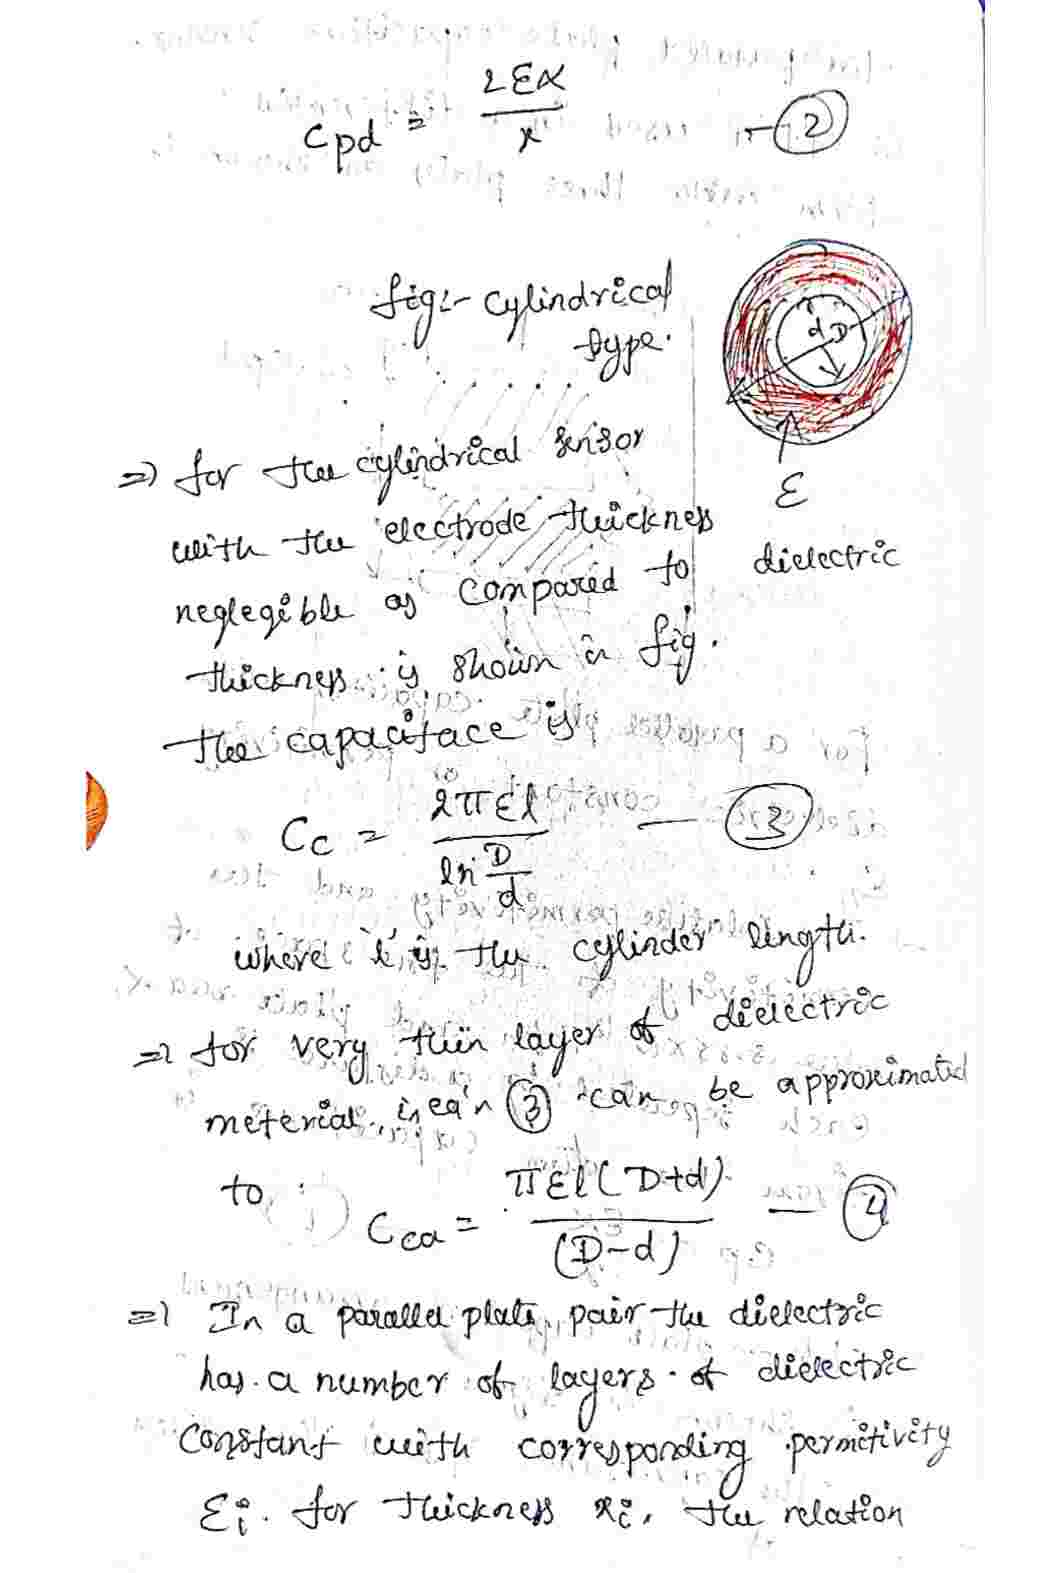 Cpd = 2εα/x - (2)
fig:- cylindrical
type.
d D
ε
=> for the cylindrical sensor
with the electrode thickness
neglegible as compared to dielectric
thickness is shown in fig.
The capacitace is
Cc = 2πεl / ln D/d — (3)
where 'l' is the cylinder length.
=> for very thin layer of dielectric
meterial, in eq'n (3) can be approximated
to Cca = πεl(D+d) / (D-d) — (4)
=> In a parallel plate pair the dielectric
has a number of layers of dielectric
constant with corresponding permitivity
εi. for thickness xi, the relation